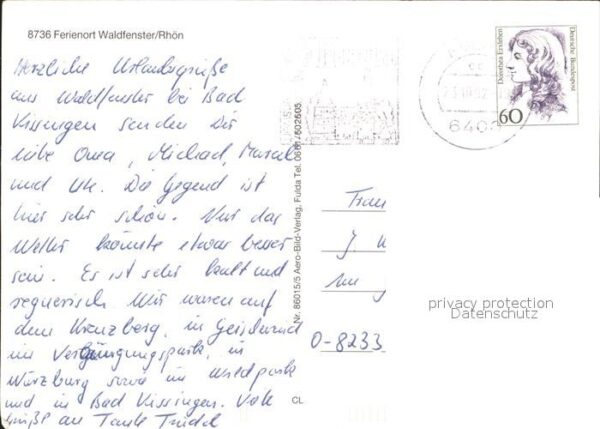 8736 Ferienort Waldfenster/Rhön
Herzliche Urlaubsgrüße
aus Waldfenster bei Bad
Kissingen senden Dir
liebe Oma, Michael, Marcel
und Ute. Die Gegend ist
hier sehr schön. Nur das
Wetter könnte etwas besser
sein. Es ist sehr kalt und
regnerisch. Wir waren auf
dem Kreuzberg, in Geiselwind
im Vergnügungspark, in
Würzburg sowie im Wildpark
und in Bad Kissingen. Viele
Grüße an Tante Trudel
CL
Nr. 86015/5 Aero-Bild-Verlag, Fulda Tel. 0661/602605
Dorothea Erxleben
Deutsche Bundespost
60
640
Frau
J. K
O-8233
privacy protection
Datenschutz